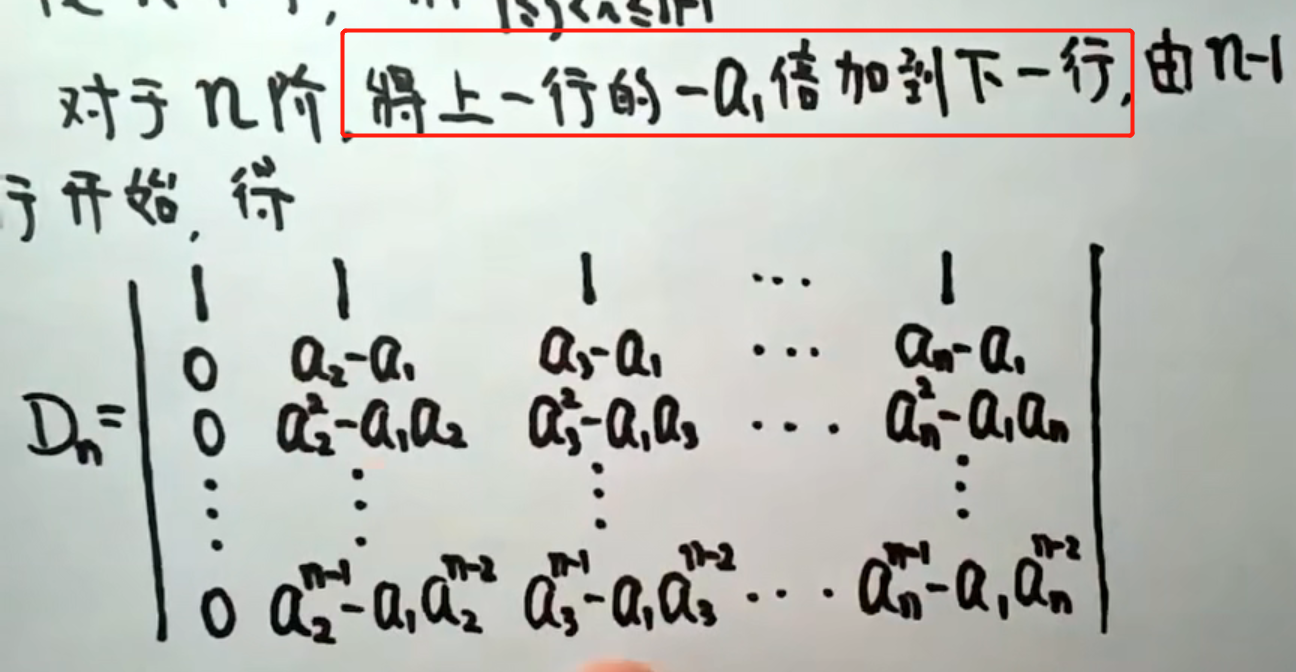 对于n阶,将上一行的-a₁倍加到下一行,由n-1
行开始,得
Dₙ= | 1 1 1 ⋯ 1 |
0 a₂-a₁ a₃-a₁ ⋯ aₙ-a₁
0 a₂²-a₁a₂ a₃²-a₁a₃ ⋯ aₙ²-a₁aₙ
⋮ ⋮ ⋮ ⋮
0 a₂ⁿ⁻¹-a₁a₂ⁿ⁻² a₃ⁿ⁻¹-a₁a₃ⁿ⁻² ⋯ aₙⁿ⁻¹-a₁aₙⁿ⁻²